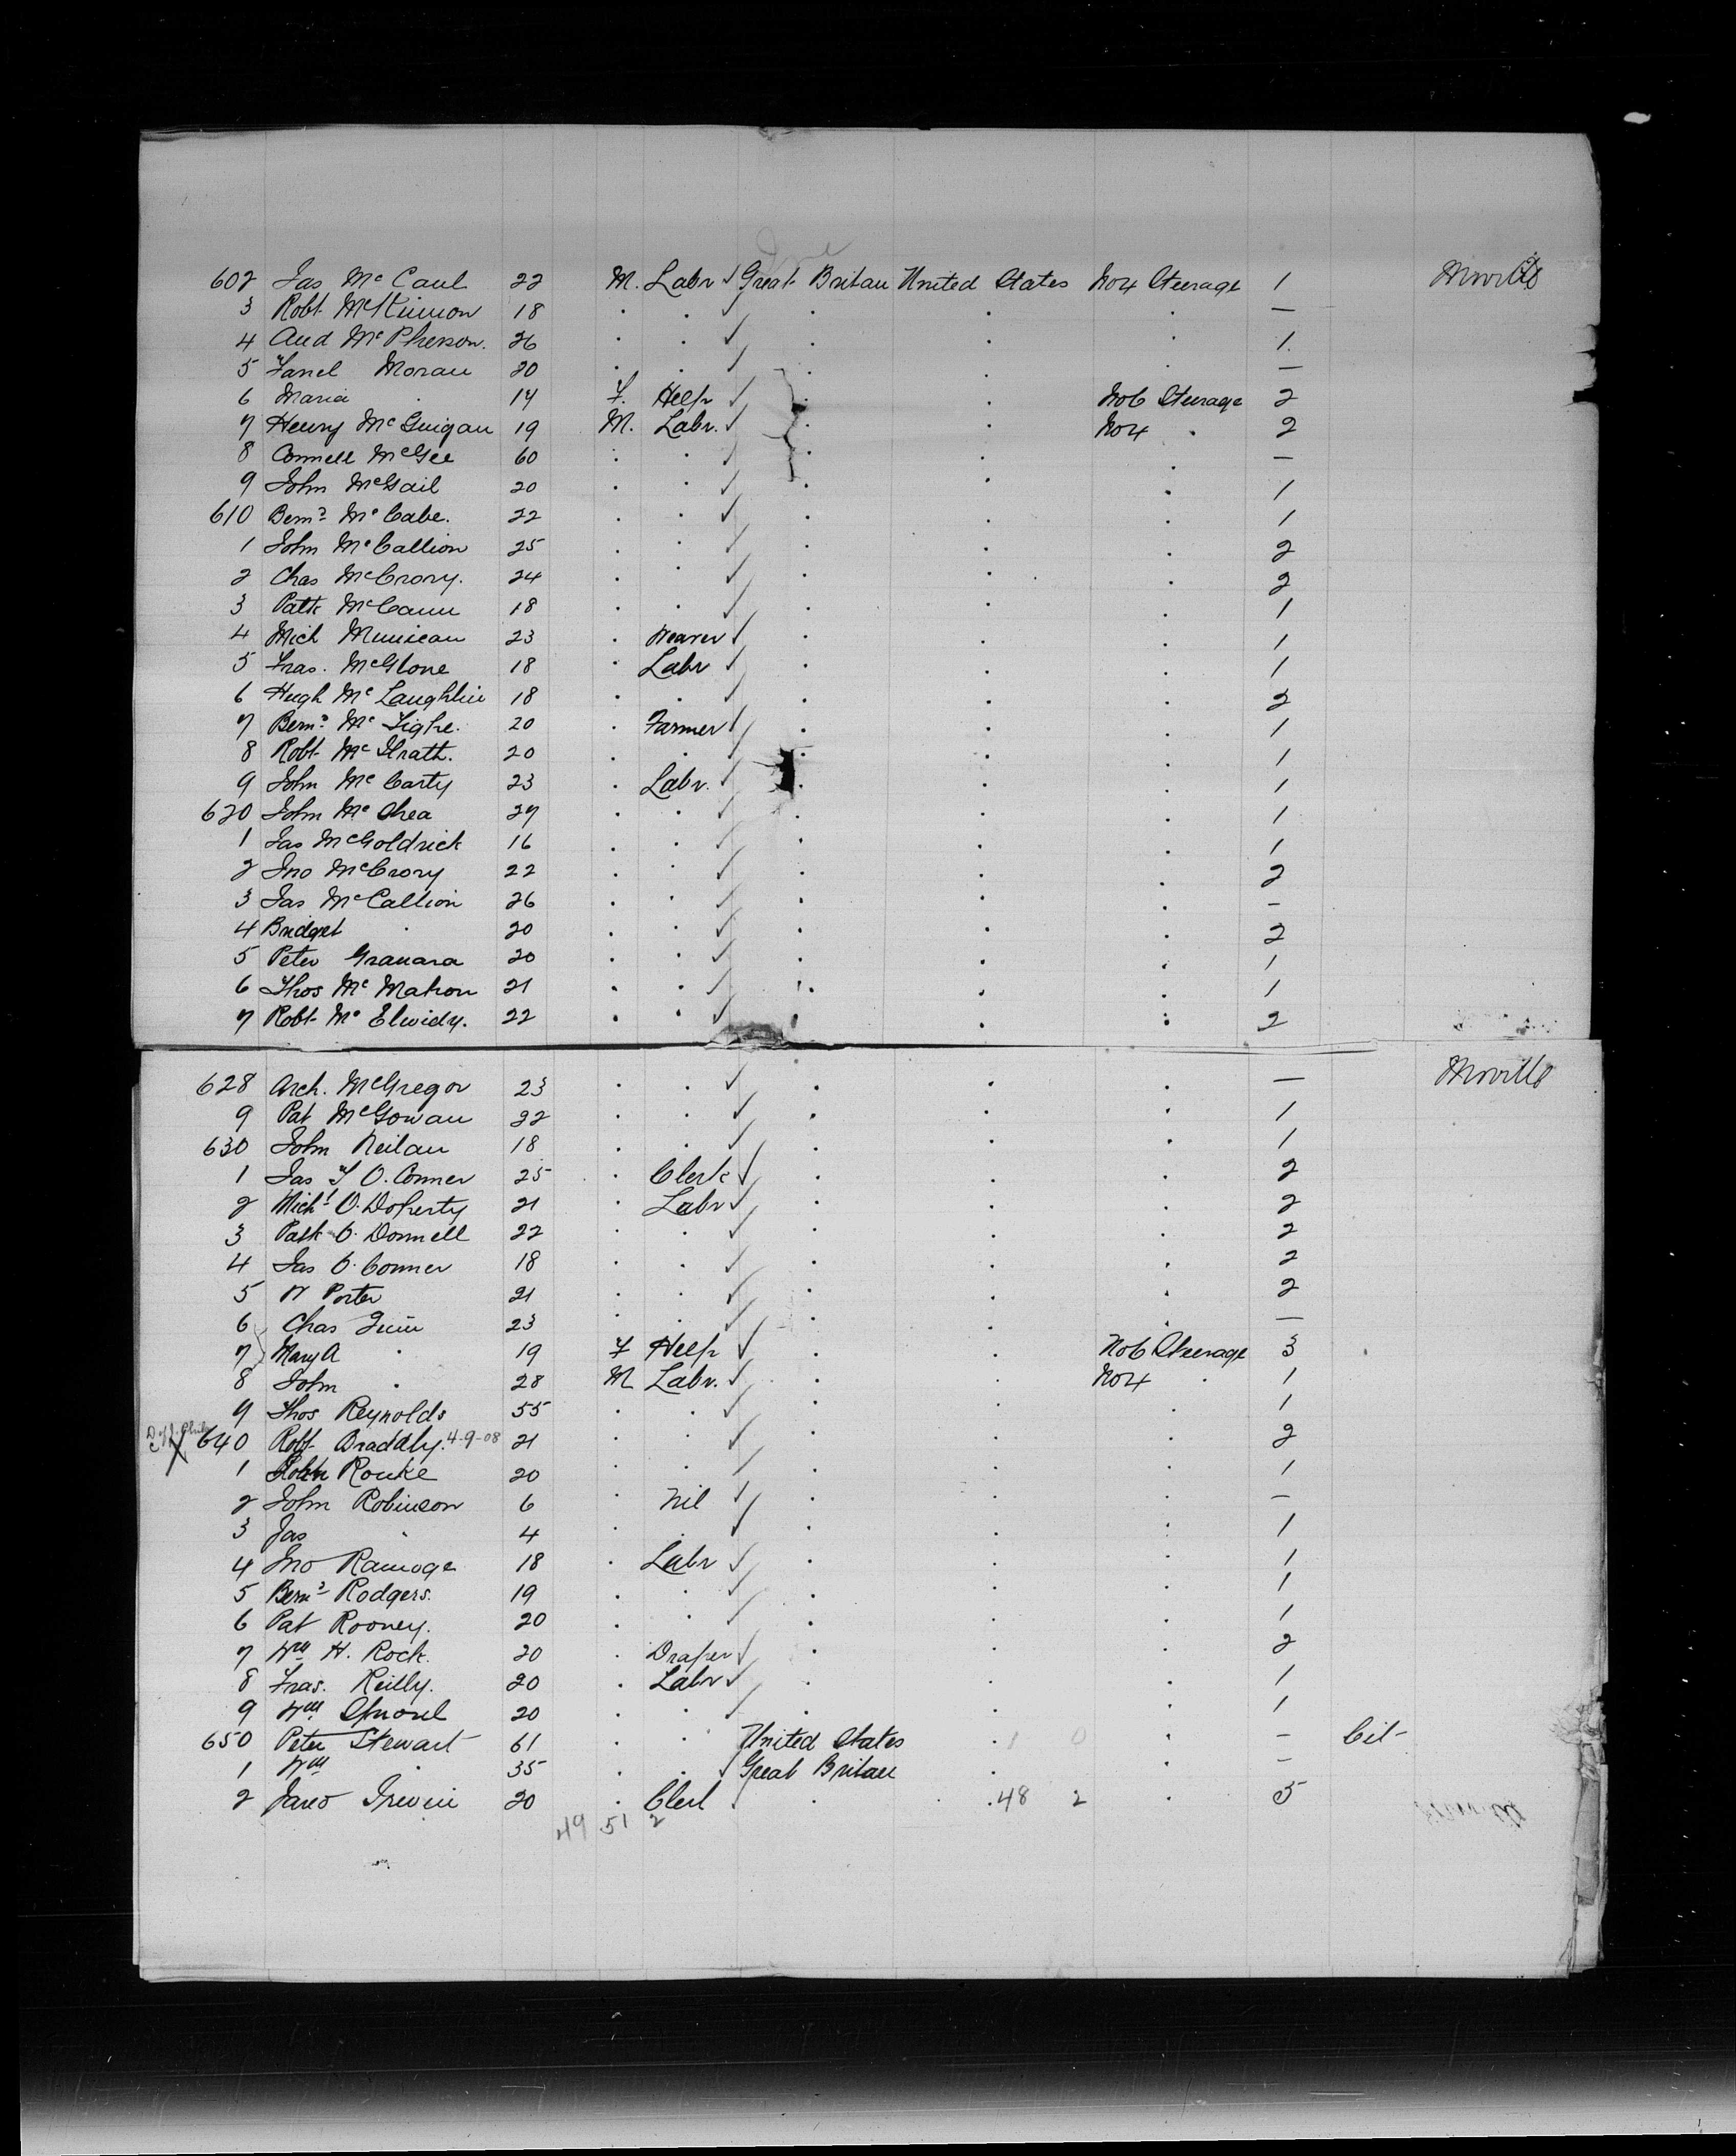 602 Jas McCaul 22 M. Labr Great Britain United States No 4 Steerage 1 Moville
3 Robt McKinnon 18 . . . . . —
4 And McPherson. 26 . . . . . 1
5 Moran 20 . . . . . —
6 Maria . 14 F. Help . . No 6 Steerage 2
7 Henry McGuigan 19 M. Labr. . . No 4 . 2
8 Connell McGee 60 . . . . . —
9 John McGail 20 . . . . . 1
610 Bernd McCabe. 22 . . . . . 1
1 John McCallion 25 . . . . . 2
2 Chas McCrory. 24 . . . . . 2
3 Patk McCann 18 . . . . . 1
4 Mich 23 . Weaver . . . 1
5 Fras. McGlone 18 . Labr . . . 1
6 Hugh McLaughlin 18 . . . . . 2
7 Bernd McTighe. 20 . Farmer . . . 1
8 Robt 20 . . . . . 1
9 John McCarty 23 . Labr. . . . 1
620 John McShea 27 . . . . . 1
1 Jas McGoldrick 16 . . . . . 1
2 Jno McCrory 22 . . . . . 2
3 Jas McCallion 26 . . . . . —
4 Bridget . 20 . . . . . 2
5 Peter Granara 20 . . . . . 1
6 Thos McMahon 21 . . . . . 1
7 Robt 22 . . . . . 2
628 Arch. McGregor 23 . . . . . — Moville
9 Pat McGowan 22 . . . . . 1
630 John Neilan 18 . . . . . 1
1 Jas F O.Conner 25 . Clerk . . . 2
2 Michl O.Doherty 21 . Labr . . . 2
3 Patk O.Donnell 22 . . . . . 2
4 Jas O.Conner 18 . . . . . 2
5 W Porter 21 . . . . . 2
6 Chas Quin 23 . . . . . —
7 Mary A . 19 F Help . . No 6 Steerage 3
8 John . 28 M Labr. . . No 4 . 1
9 Thos Reynolds 55 . . . . . 1
X 640 Robt 4-9-08 21 . . . . . 2
1 Rouke 20 . . . . . 1
2 John Robinson 6 . Nil . . . —
3 Jas . 4 . . . . . 1
4 Jno Ramoge 18 . Labr . . . 1
5 Bernd Rodgers. 19 . . . . . 1
6 Pat Rooney. 20 . . . . . 1
7 Wm H. Rock. 20 . Draper . . . 2
8 Fras. Reilly. 20 . Labr . . . 1
9 Wm 20 . . . . . 1
650 Peter Stewart 61 . . United States . 1 0 . — Cit-
1 Wm . 35 . . Great Britain . . —
2 Irwin 20 . Clerk . . 48 2 . 5
49 51 2